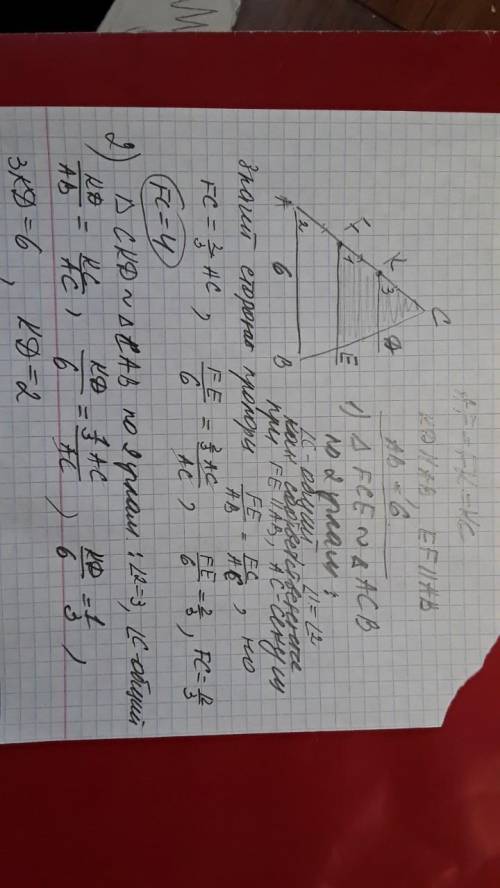 AF=FK=KC
KD||AB, EF||AB
AB=6
C
K
3
D
F
1
E
A
2
6
B
1) △FCE ~ △ACB
по 2 углам:
∠C - общий ∠1=∠2
как соответственные
при FE||AB, AC-секущ
значит стороны пропорц FE/AB = FC/AC, но
FC = 2/3 AC, FE/6 = 2/3 AC/AC, FE/6 = 2/3, FC = 12/3
FC=4
2) △CKD ~ △CAB по 2 углам: ∠2=3, ∠C-общий
KD/AB = KC/AC, KD/6 = 1/3 AC/AC, KD/6 = 1/3,
3KD=6, KD=2